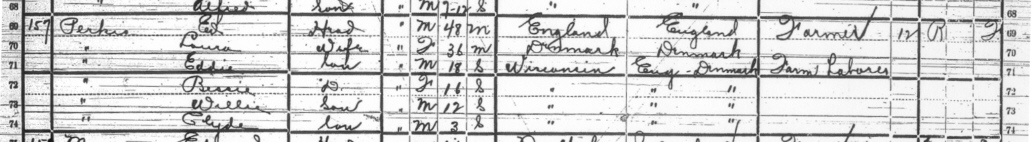 68 " Alfred Son " M 7-12 S " " 68
69 157 Perkis Ed Head " M 48 M England England Farmer 12 R F 69
70 " Laura Wife " F 36 M Denmark Denmark 70
71 " Eddie Son " M 18 S Wisconsin Eng-Denmark Farm Laborer 71
72 " Bessie D. " F 16 S " " " 72
73 " Willie Son " M 12 S " " " 73
74 " Clyde Son " M 3 S " " " 74